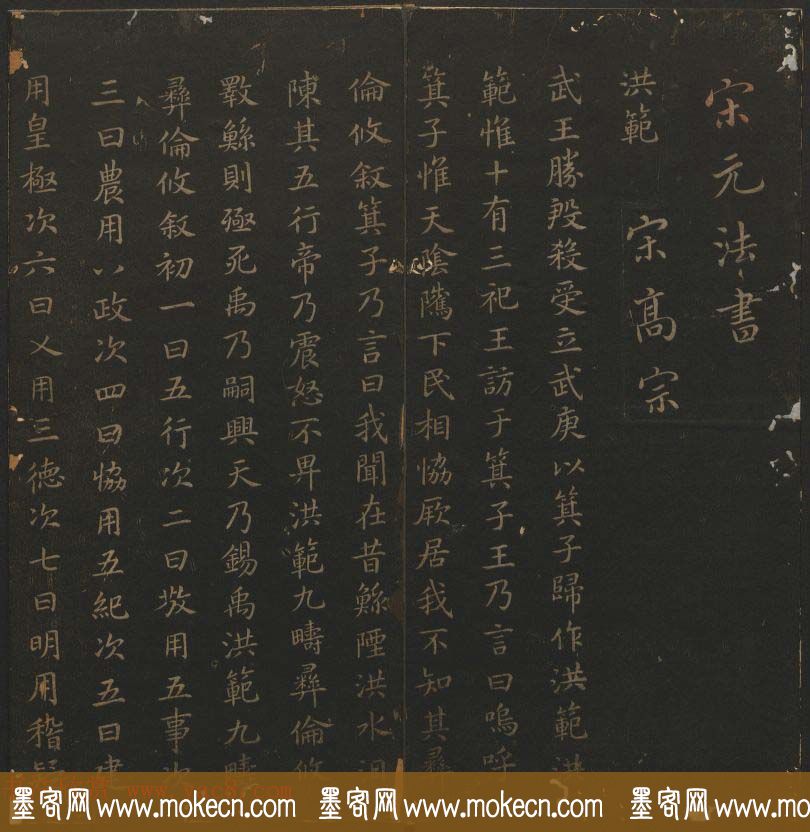 宋元法書
洪範
宋高宗
武王勝殷殺受立武庚以箕子歸作洪範洪
範惟十有三祀王訪于箕子王乃言曰嗚呼
箕子惟天陰隲下民相恊厥居我不知其彝
倫攸敘箕子乃言曰我聞在昔鯀陻洪水汩
陳其五行帝乃震怒不畀洪範九疇彝倫攸
斁鯀則殛死禹乃嗣興天乃錫禹洪範九疇
彝倫攸敘初一曰五行次二曰敬用五事次
三曰農用八政次四曰恊用五紀次五曰建
用皇極次六曰乂用三德次七曰明用稽
墨客网 www.mokecn.com 墨客网 www.mokecn.com 墨客网 www.mokecn.com